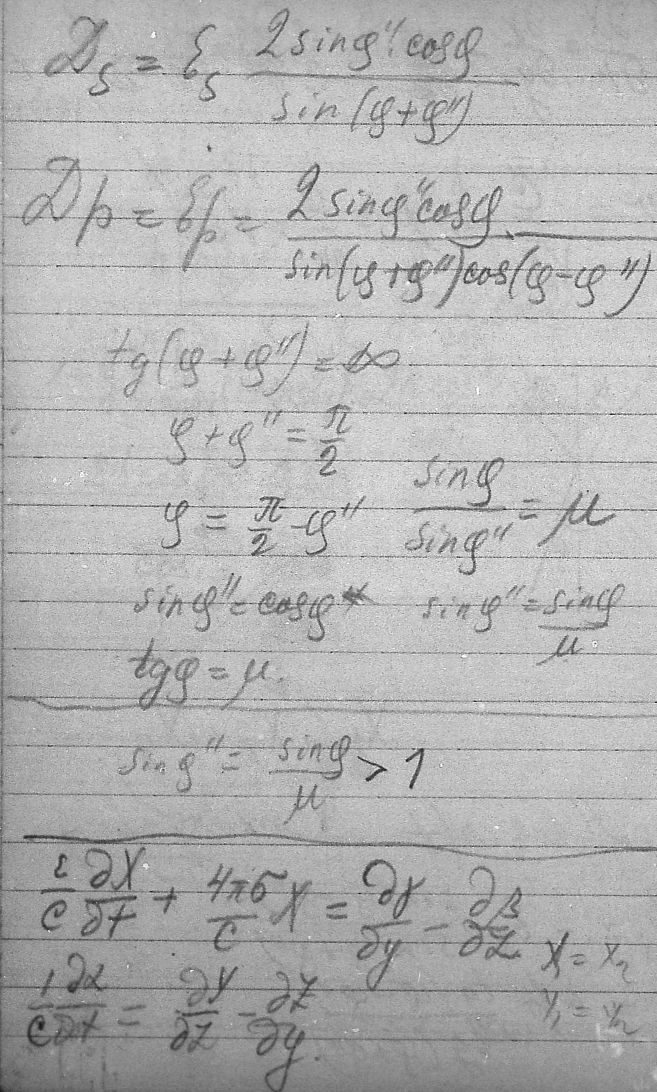 D_s = E_s 2 sin φ'' cos φ / sin(φ+φ'')
D_p = E_p = 2 sin φ'' cos φ / sin(φ+φ'') cos(φ-φ'')
tg(φ+φ'') = ∞
φ+φ'' = π/2
φ = π/2 - φ'' sin φ / sin φ'' = μ
sin φ'' = cos φ sin φ'' = sin φ / μ
tg φ = μ.
sin φ'' = sin φ / μ > 1
∂X/∂t + 4πσ/c X = ∂γ/∂y - ∂β/∂z X₁ = X₂
1/c ∂α/∂t = ∂Y/∂z - ∂Z/∂y. Y₁ = Y₂